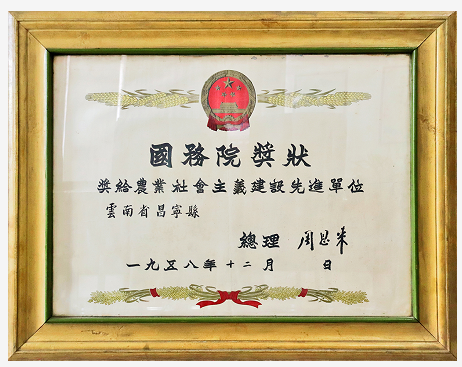 國務院獎狀
獎給農業社會主義建設先進單位
雲南省昌寧縣
總理 周恩来
一九五八年十二月 日